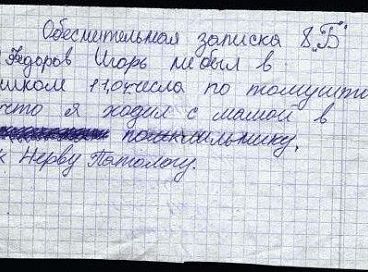 Обеснительная записка 8 „Б"
Федоров Игорь небыл в
школом 11,0 числа по томушто
что я ходил с мамой в
полильнику,
к Нерву Патологу.